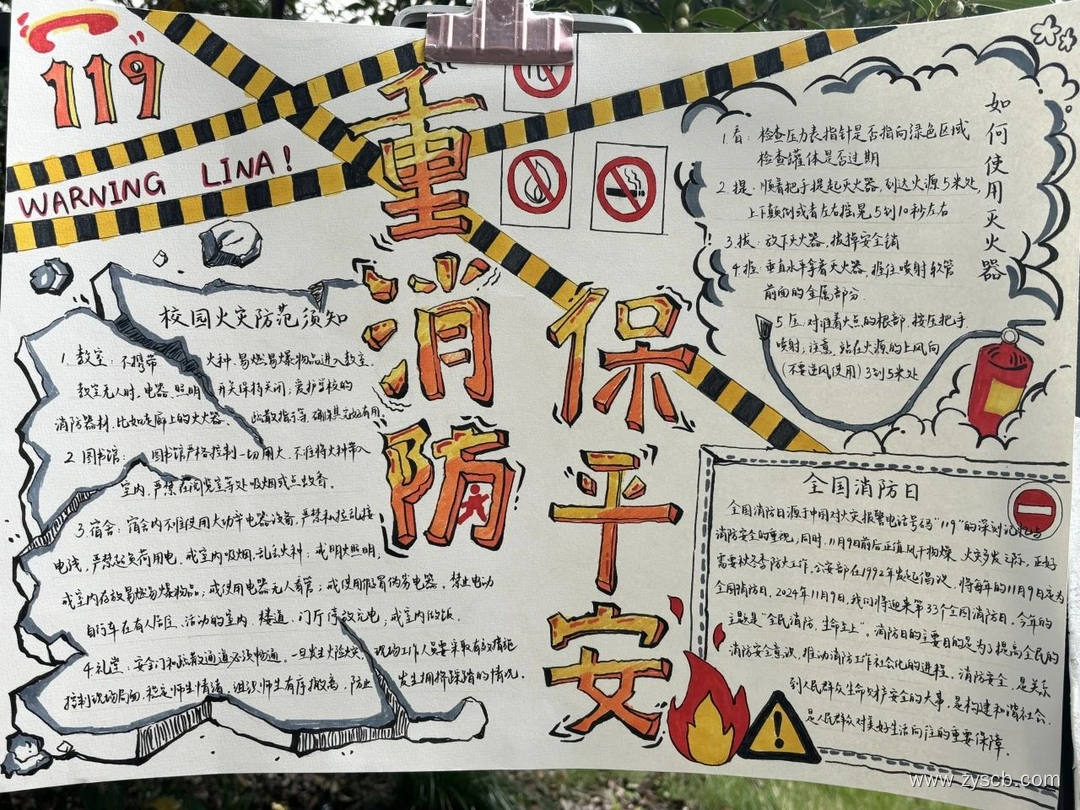 119
WARNING LINA!
重消防
保平安
校园火灾防范须知
1. 教室: 不携带 火种、易燃易爆物品进入教室.
教室无人时, 电器、照明 开关保持关闭; 爱护学校的
消防器材, 比如走廊上的灭火器、 疏散指示等, 确保其完好有用.
2. 图书馆: 图书馆严格控制一切用火, 不准将火种带入
室内, 严禁在阅览室等处吸烟或点蚊香.
3. 宿舍: 宿舍内不准使用大功率电器设备, 严禁私拉乱接
电线, 严禁超负荷用电, 或室内吸烟, 乱丢火种, 或明火照明,
或室内存放易燃易爆物品; 或使用电器无人看管; 或使用假冒伪劣电器. 禁止电动
自行车在有人居住、活动的室内、楼道、门厅停放充电, 或室内做饭.
4. 礼堂: 安全门和疏散通道必须畅通, 一旦发生火险火灾, 现场工作人员要采取有效措施
控制现场局面, 稳定师生情绪, 组织师生有序撤离, 防止 发生拥挤踩踏的情况.
如何使用灭火器
1. 看: 检查压力表指针是否指向绿色区域
检查罐体是否过期
2. 提: 顺着把手提起灭火器, 到达火源5米处,
上下颠倒或者左右摇晃5到10秒左右
3. 拔: 放下灭火器, 拔掉安全销
4. 握: 垂直水平拿着灭火器, 握住喷射软管
前面的金属部分.
5. 压: 对准着火点的根部, 按压把手
喷射, 注意, 站在火源的上风向
(不要逆风使用) 3到5米处
全国消防日
全国消防日源于中国对火灾报警电话号码"119"的深刻记忆与
消防安全的重视, 同时, 11月9日前后正值风干物燥、火灾多发之际, 正好
需要做冬季防火工作, 公安部在1992年发起倡议, 将每年的11月9日定为
全国消防日, 2024年11月9日, 我们将迎来第33个全国消防日, 今年的
主题是"全民消防、生命至上". 消防日的主要目的是为了提高全民的
消防安全意识, 推动消防工作社会化的进程, 消防安全, 是关系
到人民群众生命财产安全的大事, 是构建和谐社会,
是人民群众对美好生活向往的重要保障.
www.zyscb.com